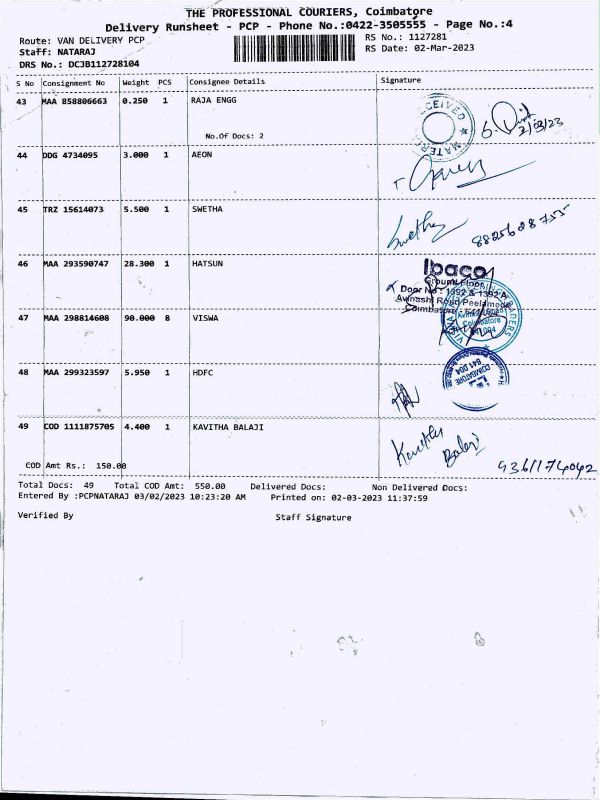 THE PROFESSIONAL COURIERS, Coimbatore
Delivery Runsheet - PCP - Phone No.:0422-3505555 - Page No.:4
Route: VAN DELIVERY PCP RS No.: 1127281
Staff: NATARAJ RS Date: 02-Mar-2023
DRS No.: DCJB112728104
S No Consignment No Weight PCS Consignee Details Signature
43 MAA 858806663 0.250 1 RAJA ENGG
No.Of Docs: 2
RECEIVED
MATER
2/03/23
44 DDG 4734095 3.000 1 AEON
45 TRZ 15614073 5.500 1 SWETHA
Swetha 8825628755
46 MAA 293590747 28.300 1 HATSUN
Ibaco
Ground Floor
Door No : 1392 & 1392 A
Avinashi Road Peelamedu
Coimbatore - 641 004
47 MAA 298814608 90.000 8 VISWA
TRADERS
Coimbatore
48 MAA 299323597 5.950 1 HDFC
COIMBATORE
641 004
49 COD 1111875705 4.400 1 KAVITHA BALAJI
Kavitha
Balaji
9361174042
COD Amt Rs.: 150.00
Total Docs: 49 Total COD Amt: 550.00 Delivered Docs: Non Delivered Docs:
Entered By :PCPNATARAJ 03/02/2023 10:23:20 AM Printed on: 02-03-2023 11:37:59
Verified By Staff Signature